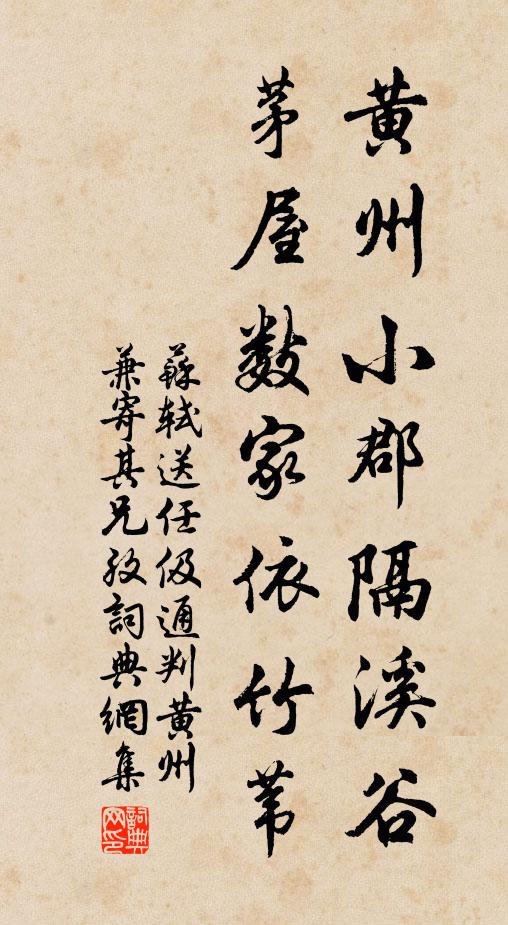 黄州小郡隔溪谷
茅屋數家依竹苇
蘇軾送任伋通判黄州
兼寄其兄孜詞典網集
詞典
网印